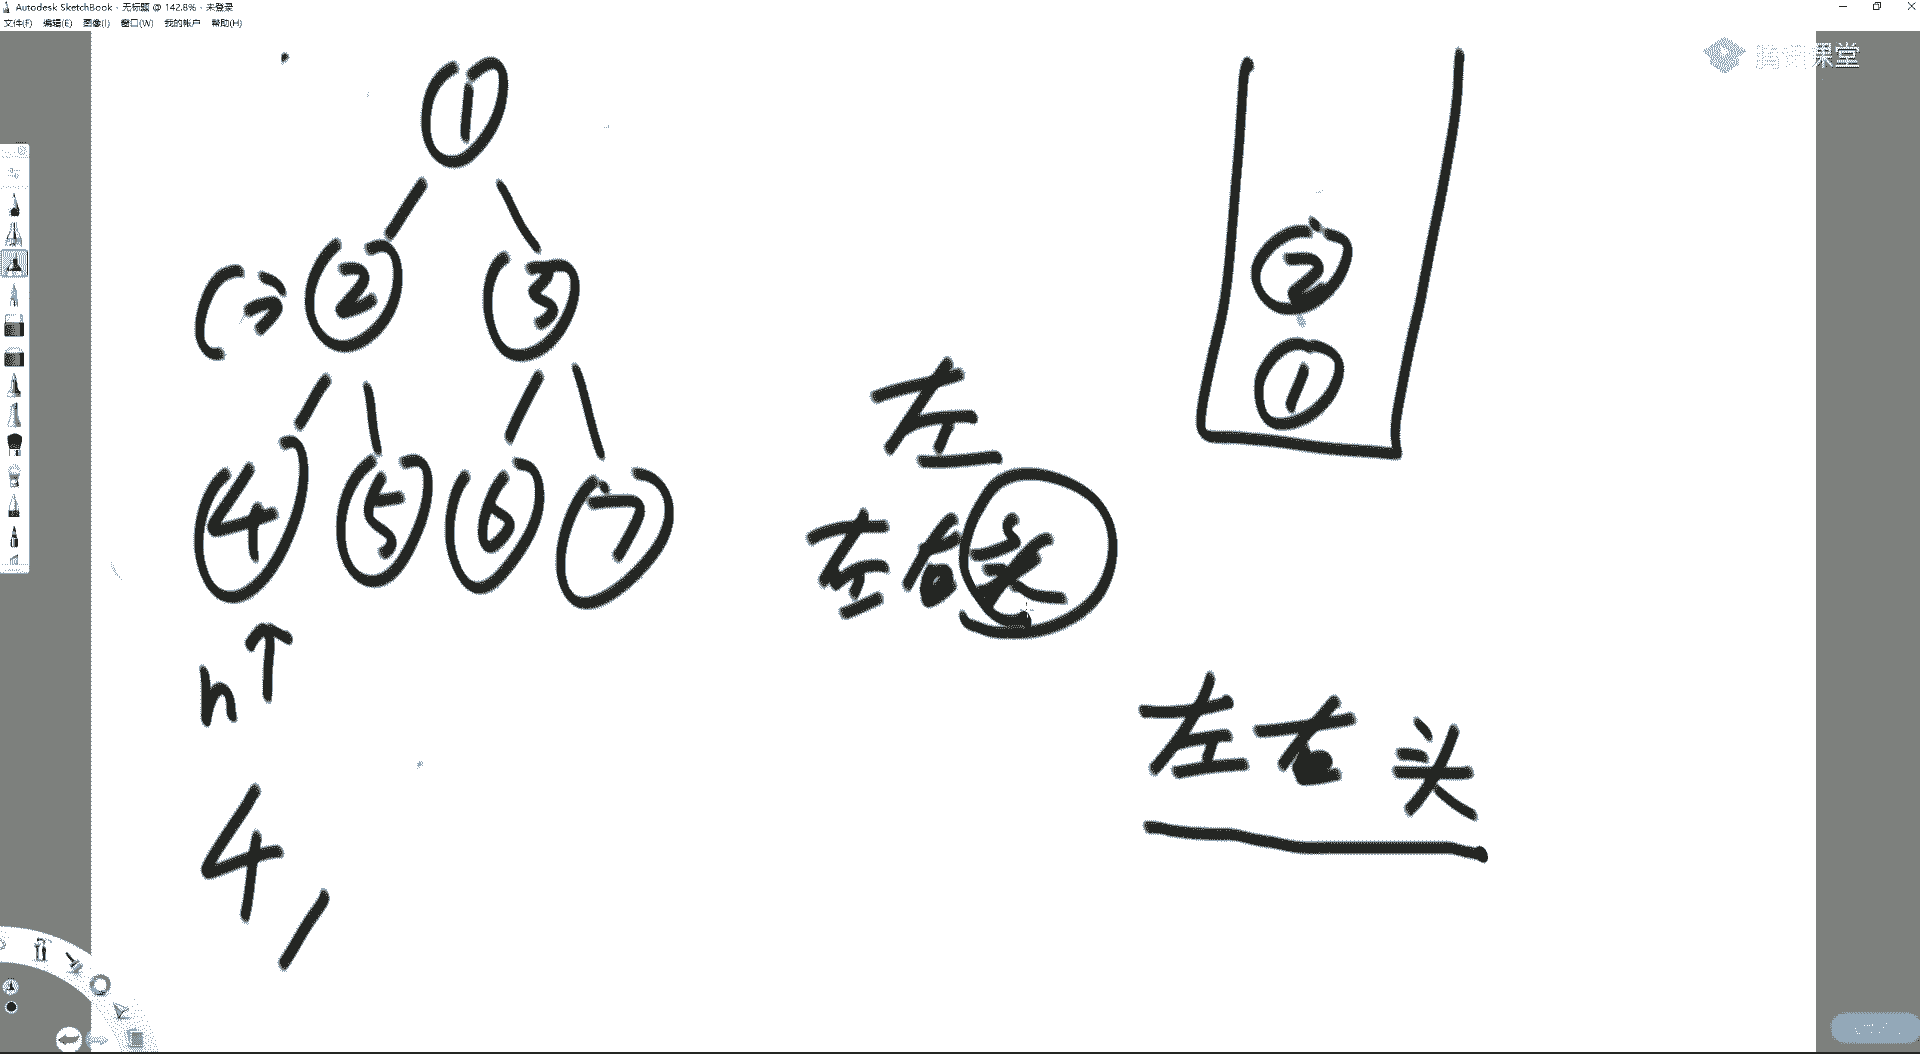 Autodesk SketchBook - 无标题 @ 142.8% - 未登录
文件(F) 编辑(E) 图像(I) 窗口(W) 我的帐户 帮助(H)
腾讯课堂
1
2 3
4 5 6 7
h
4
2
1
左
左右头
左右头